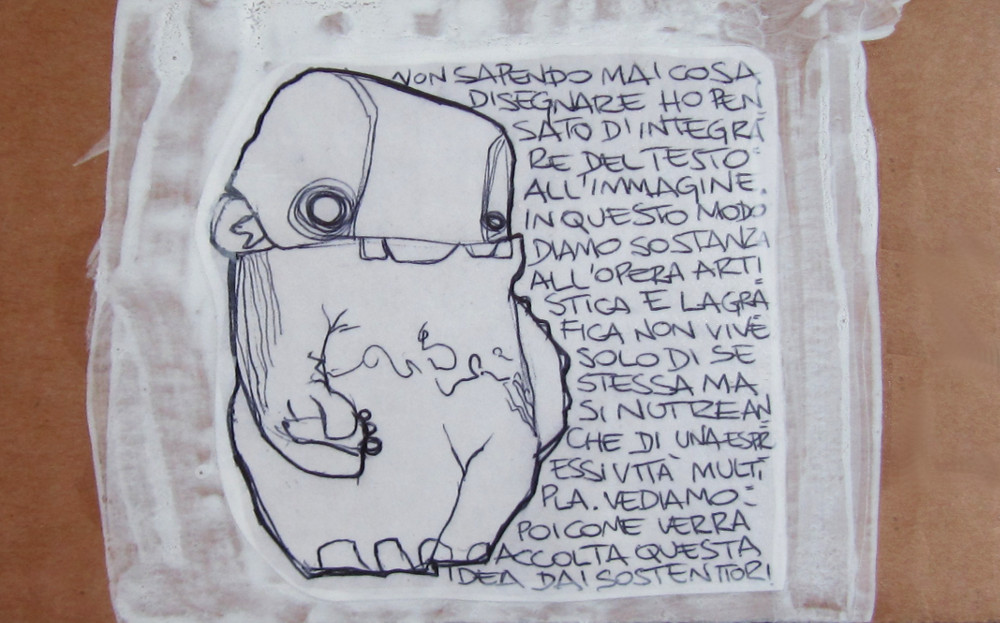 NON SAPENDO MAI COSA
DISEGNARE HO PEN
SATO D'INTEGRA
RE DEL TESTO
ALL'IMMAGINE.
IN QUESTO MODO
DIAMO SOSTANZA
ALL'OPERA ARTI
STICA E LA GRA
FICA NON VIVE
SOLO DI SE
STESSA MA
SI NUTRE AN
CHE DI UNA ESPR
ESSIVITÀ MULTI
PLA. VEDIAMO
POI COME VERRA
ACCOLTA QUESTA
IDEA DAI SOSTENITORI